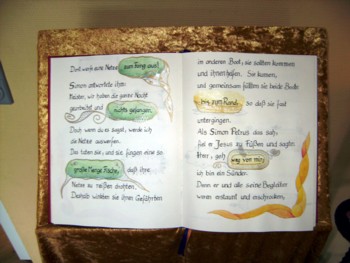 Dort werft eure Netze zum Fang aus!
Simon antwortete ihm:
Meister, wir haben die ganze Nacht
gearbeitet und nichts gefangen.
Doch wenn du es sagst, werde ich
die Netze auswerfen.
Das taten sie, und sie fingen eine so
große Menge Fische, daß ihre
Netze zu reißen drohten.
Deshalb winkten sie ihren Gefährten
im anderen Boot, sie sollten kommen
und ihnen helfen. Sie kamen,
und gemeinsam füllten sie beide Boote
bis zum Rand, so daß sie fast
untergingen.
Als Simon Petrus das sah,
fiel er Jesus zu Füßen und sagte:
Herr, geh weg von mir;
ich bin ein Sünder.
Denn er und alle seine Begleiter
waren erstaunt und erschrocken,